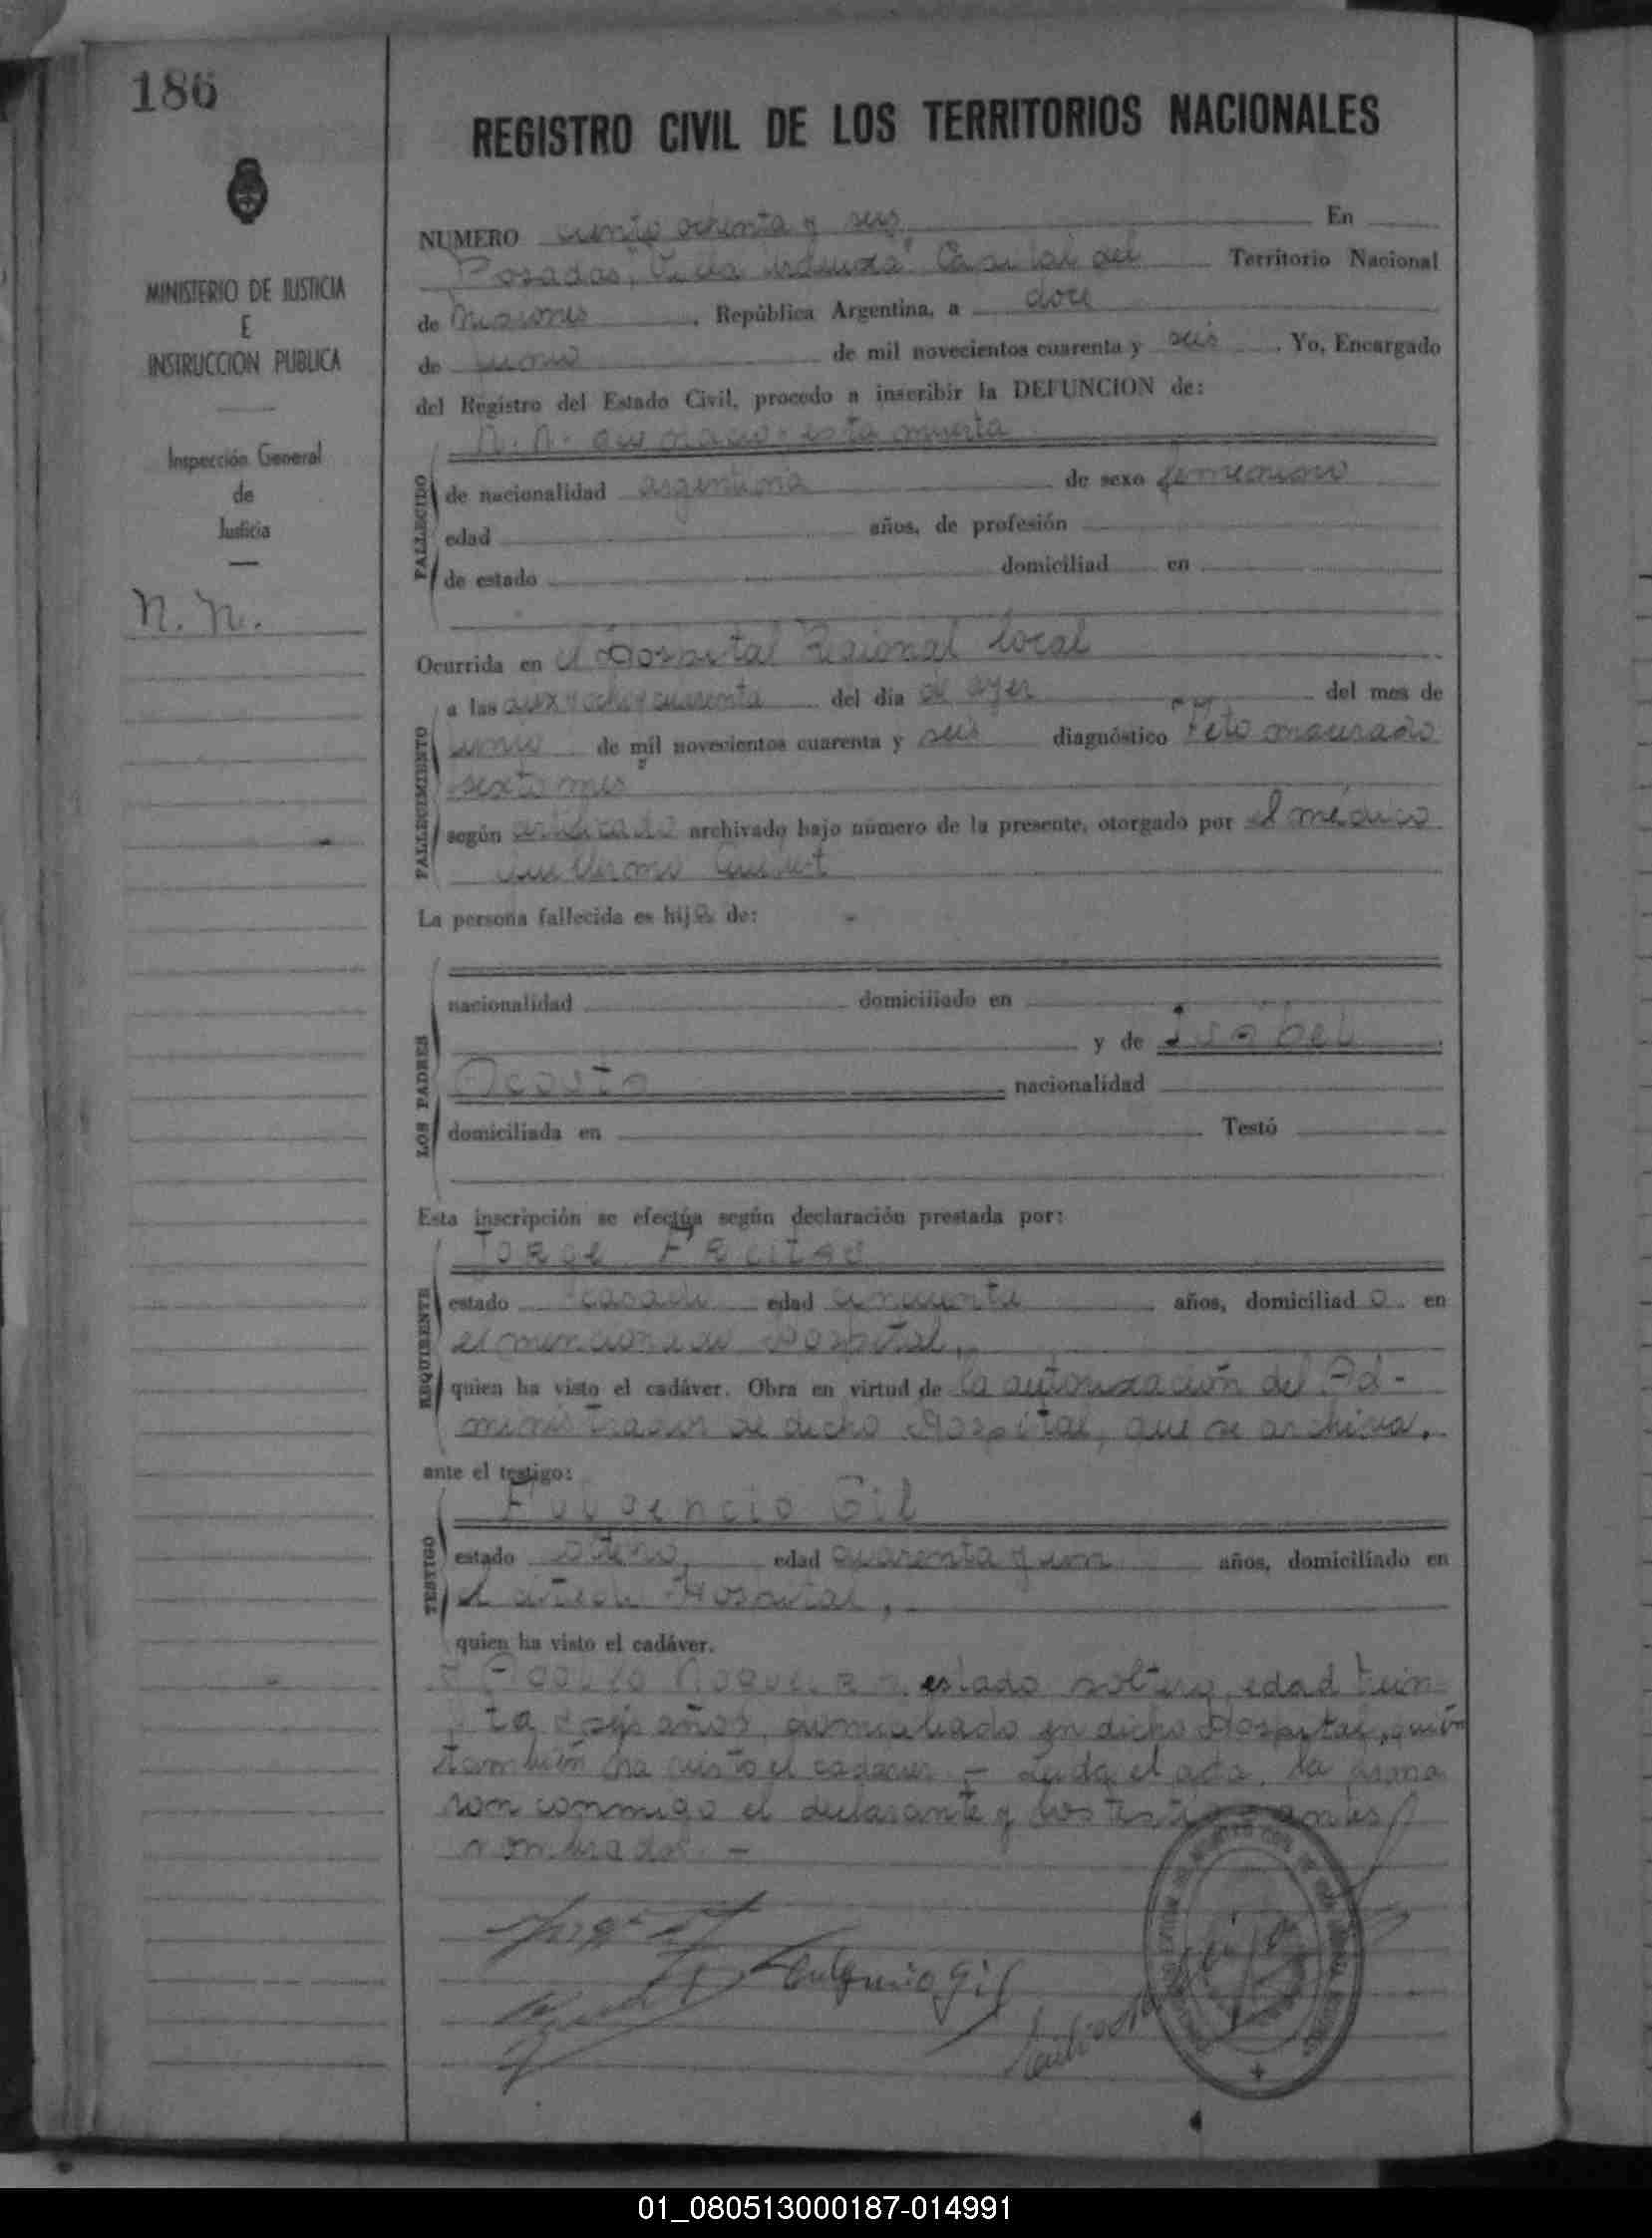 186
MINISTERIO DE JUSTICIA
E
INSTRUCCION PUBLICA
Inspección General
de
Justicia
N. N.
REGISTRO CIVIL DE LOS TERRITORIOS NACIONALES
NUMERO ciento ochenta y seis En
Posadas, "Villa " Capital del Territorio Nacional
de Misiones, República Argentina, a doce
de junio de mil novecientos cuarenta y seis. Yo, Encargado
del Registro del Estado Civil, procedo a inscribir la DEFUNCION de:
N. N. que nació esta muerta
FALLECIDO
de nacionalidad argentina de sexo femenino
edad años, de profesión
de estado domiciliad en
Ocurrida en el Hospital Regional local
FALLECIMIENTO
a las diez y ocho y cuarenta del día de ayer del mes de
junio de mil novecientos cuarenta y seis diagnóstico Feto macerado
sexto mes
según certificado archivado bajo número de la presente, otorgado por el médico
Guillermo
La persona fallecida es hija de:
LOS PADRES
nacionalidad domiciliado en
y de Isabel
Acosta nacionalidad
domiciliada en Testó
Esta inscripción se efectúa según declaración prestada por:
REQUIRENTE
Jorge Freitas
estado casado edad cincuenta años, domiciliado en
el mencionado Hospital,
quien ha visto el cadáver. Obra en virtud de la autorización del Ad-
ministrador de dicho Hospital, que se archiva,
ante el testigo:
TESTIGO
Fulgencio Gil
estado soltero, edad cuarenta y un años, domiciliado en
el citado Hospital,
quien ha visto el cadáver.
y estado soltero, edad trein-
ta y seis años, domiciliado en dicho Hospital, quién
también ha visto el cadáver. - Leída el acta, la firma
ron conmigo el declarante y los testigos antes
nombrados. -
Fulgencio Gil
01_080513000187-014991